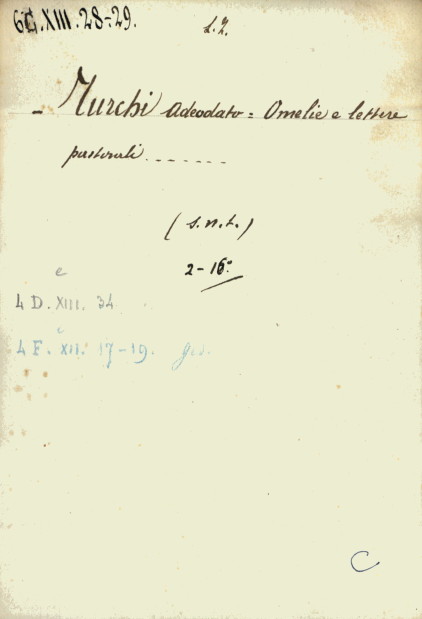 6G.XIII.28-29.
- Turchi Adeodato = Omelie e lettere
pastorali - - - - - -
(s.n.t.)
2-16º
e
4 D. XIII. 34
e
4 F. XII. 17-19.
C